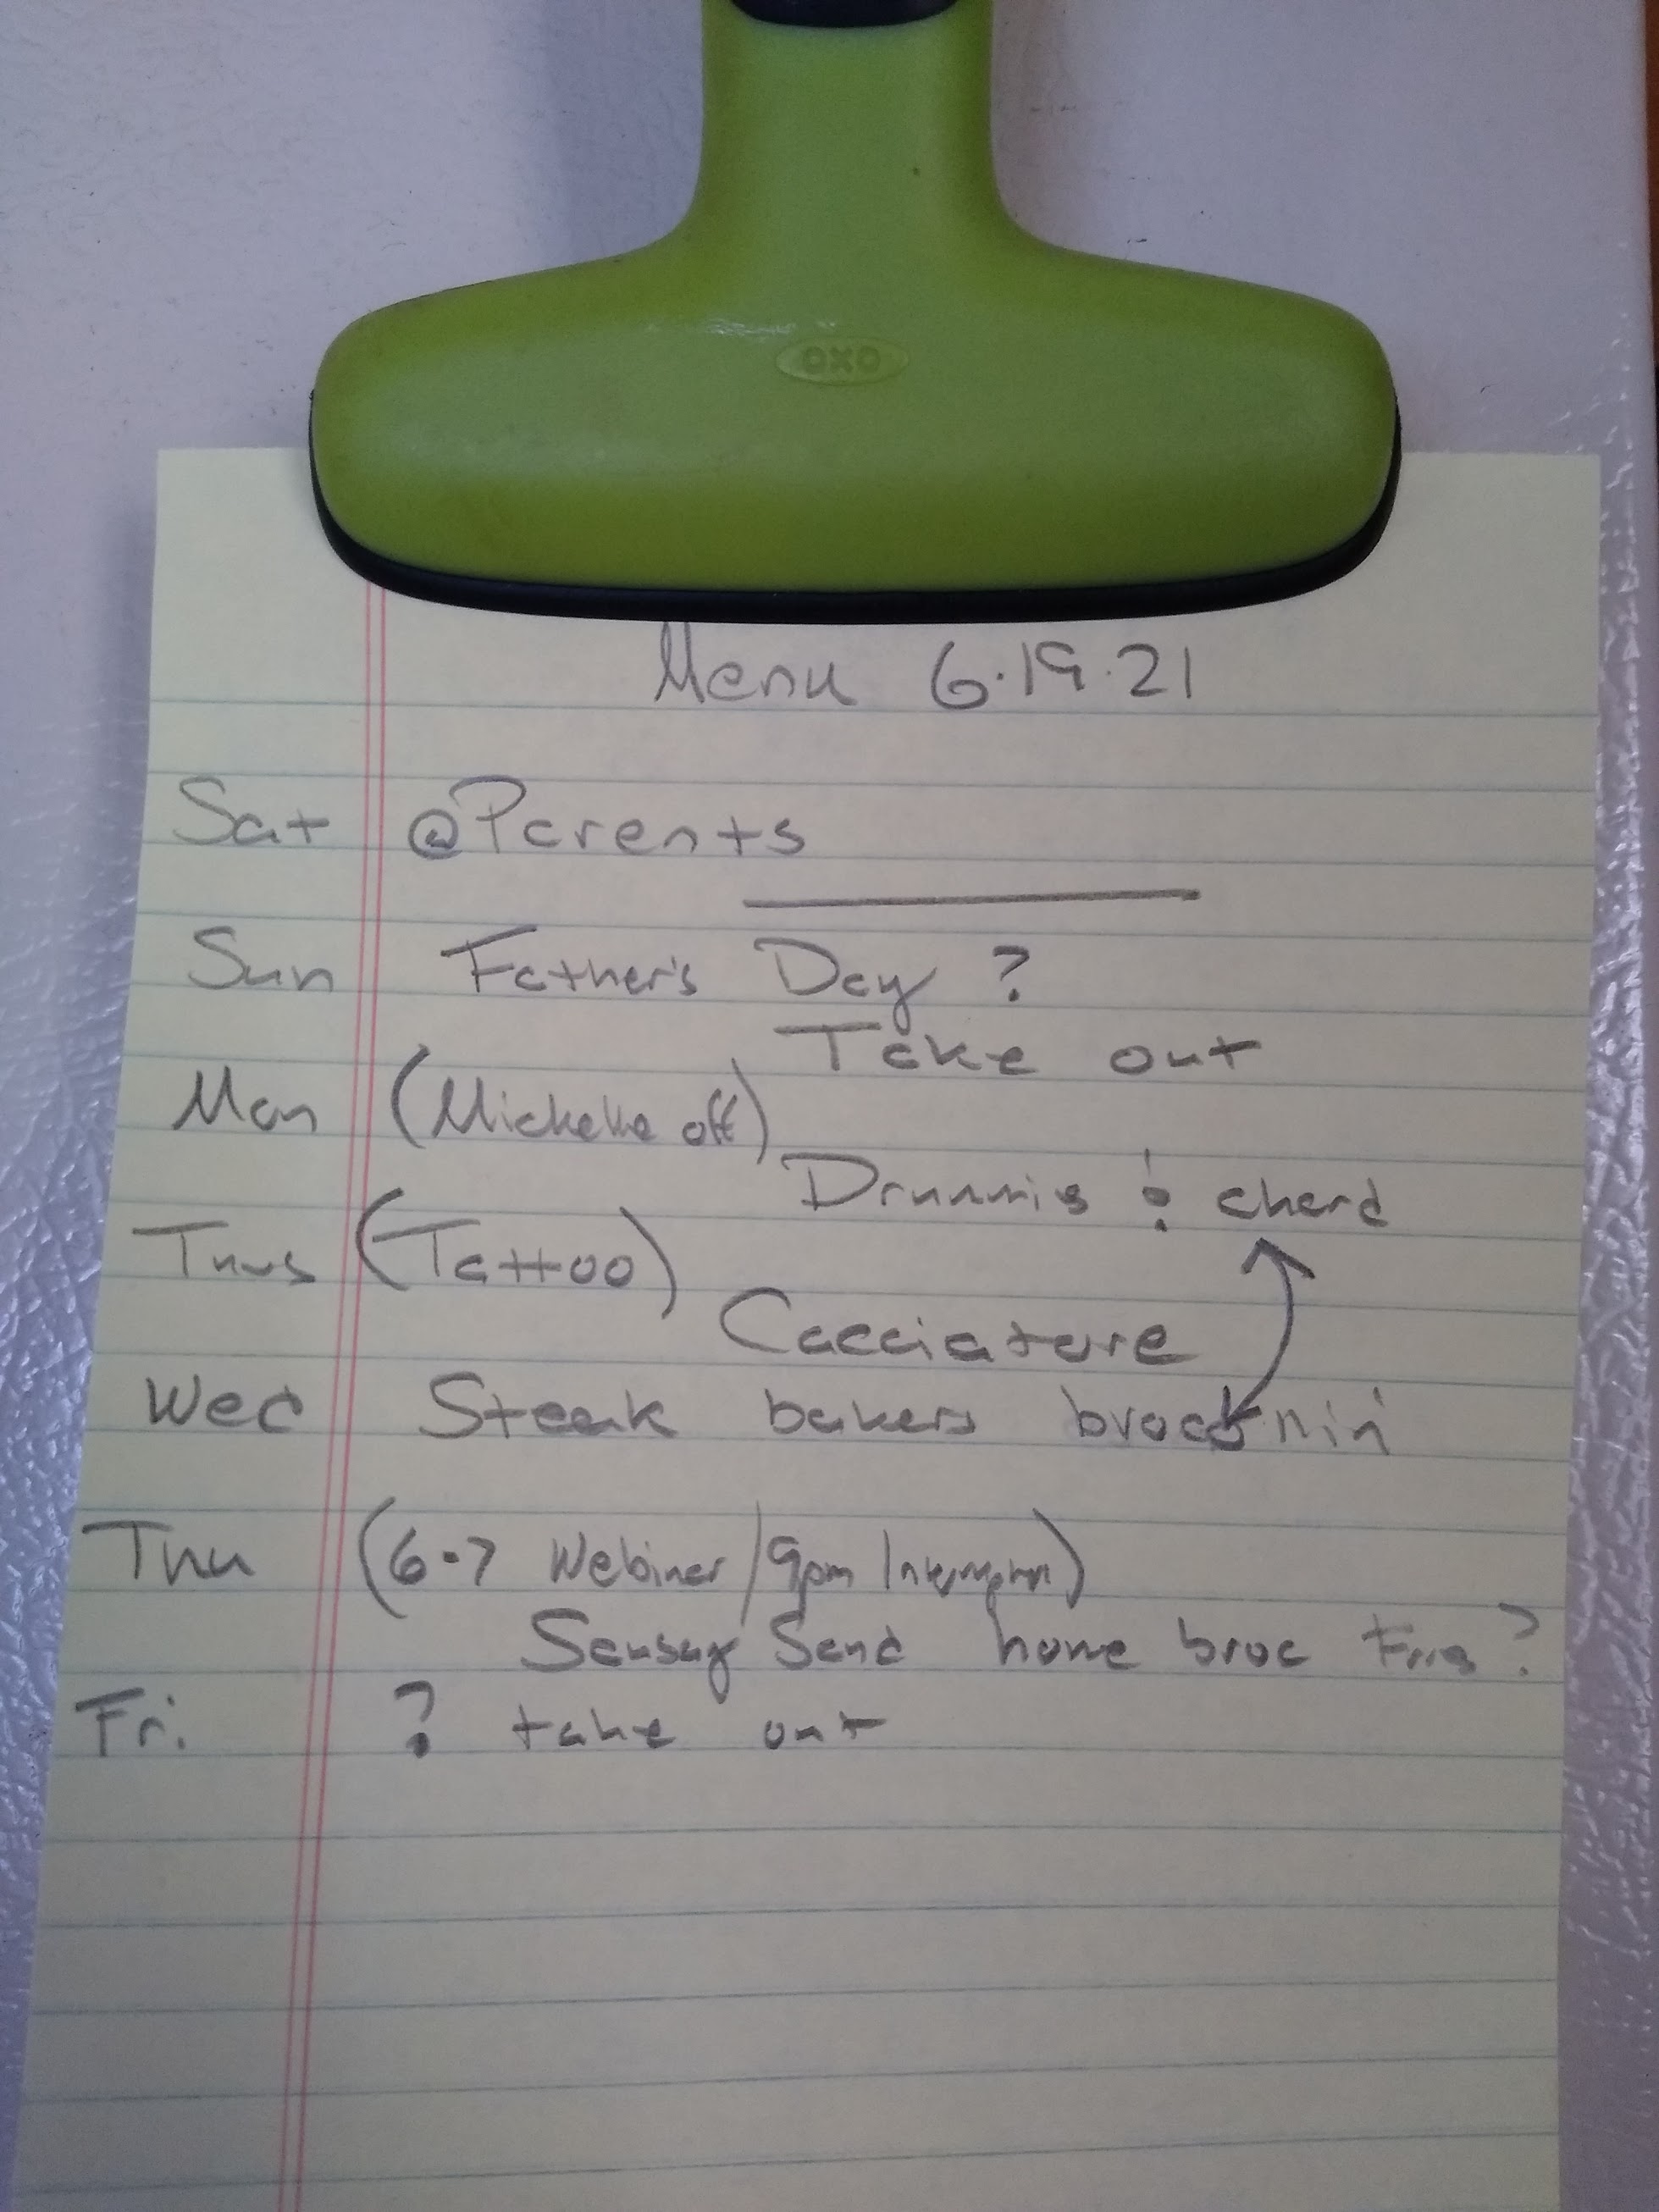 OXO
Menu 6.19.21
Sat @Parents
Sun Father's Day ?
Take out
Mon (Michelle off)
Drummis & chard
Tues (Tattoo)
Cacciatore
Wed Steak bakers
Thu (6-7 Webinar/9pm
Sausag Sand home broc Fries?
Fri. ? take out